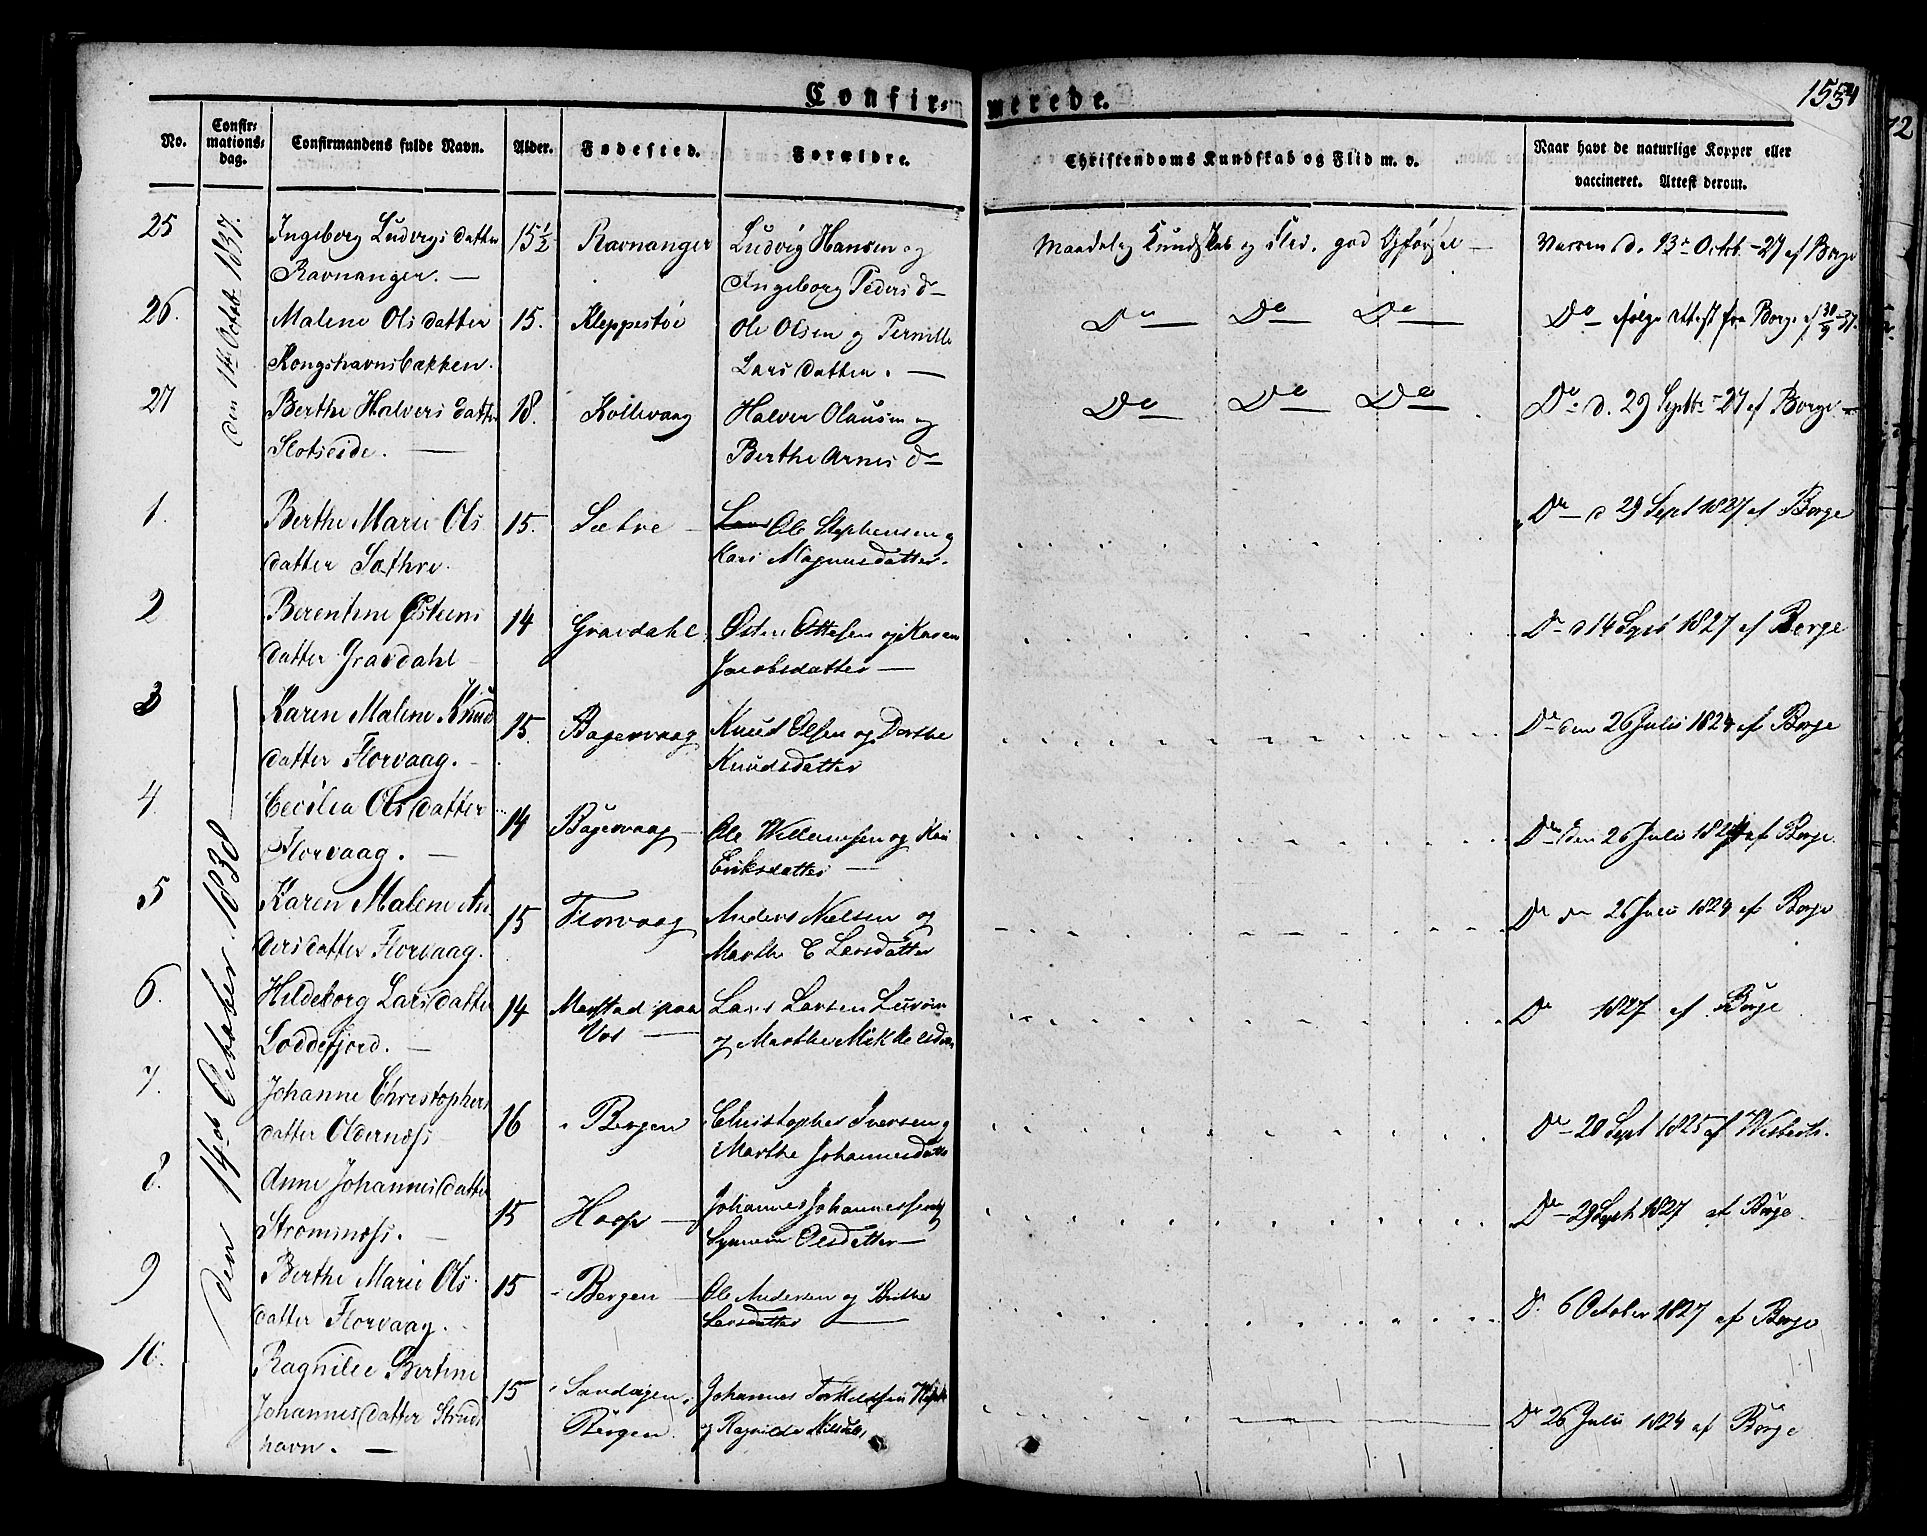 Confir-
merede.
155
No.
Confir-
mations-
dag.
Confirmandens fulde Navn.
Alder.
Fødested.
Forældre.
Christendoms Kundskab og Flid m. v.
Naar havt de naturlige Kopper eller
vaccineret. Attest derom.
den 1ste Octob. 1837.
25 Ingeborg Ludvigsdatter 15½ Ravnanger Ludvig Hansen og Maadelig Kundskab og Flid. god Opførsel — Vaccin d. 13de Octob. -27 af Borge
Ravnanger. — Ingeborg Peders D—
26. Malene Olsdatter 15. Kleppestøe Ole Olsen og Pernille Do Do Do Do følge attest fra Borge af
Kongshavnsbakken. Larsdatter. —
27 Berthe Halversdatter 18. Kollevaag Halver Olausen og Do Do Do Do d. 29 Septbr -27 af Borge
Slotseide. — Berthe Arnes D—
den 14de October 1838 —
1. Berthe Marie Ols 15. Sætre — Ole Stephensen og Do — d 29 Sept 1827 af Borge
datter Sæthre. Kari Magnusdatter.
2 Berentine Østens 14 Gravdahl Østen Ottesen og Karen Do d 14 Sept 1827 af Borge
datter Gravdahl — Jacobsdatter —
3 Karen Malene Knud 15. Bagervaag Knud Olsen og Dorthe Do den 26 Julii 1824 af Borge
datter Florvaag. — Knudsdatter
4 Cecilia Olsdatter 14 Bagervaag — Ole Willumsen og Kari Do den 26 Julii 1824 af Borge.
Florvaag. — Eriksdatter —
5 Karen Malene An 15 Florvaag Anders Nielsen og Do den 26 Julii 1824 af Borge
dersdatter Florvaag. Marthe C Larsdatter
6. Hildeborg Larsdatter 14 Mestad paa Lars Larsen Do 1827 af Borge
Loddefjord. — Vos — og Marthe Mikkelsd
7. Johanne Christophers 16 Bergen Christopher Iversen og Do — 20 Sept 1825 af Wisbech.
datter Oldernæss — Marthe Johannesdatter
8. Anne Johannesdatter 15 Hoop — Johannes Johannessen og Do — 29 Sept 1827 af Borge.
Strømnæss. — Olsdatter —
9 Berthe Marie Ols 15 Bergen — Ole Andersen og Brithe Do 6 October 1827 af Borge
datter Florvaag. Larsdatter —
10. Ragnilde Bertine 15 Sandvigen, Johannes Torkildsen Do 26 Julii 1824 af Borge
Johannesdatter Struds Bergen. og Ragnilde Nilsdatter
havn. —